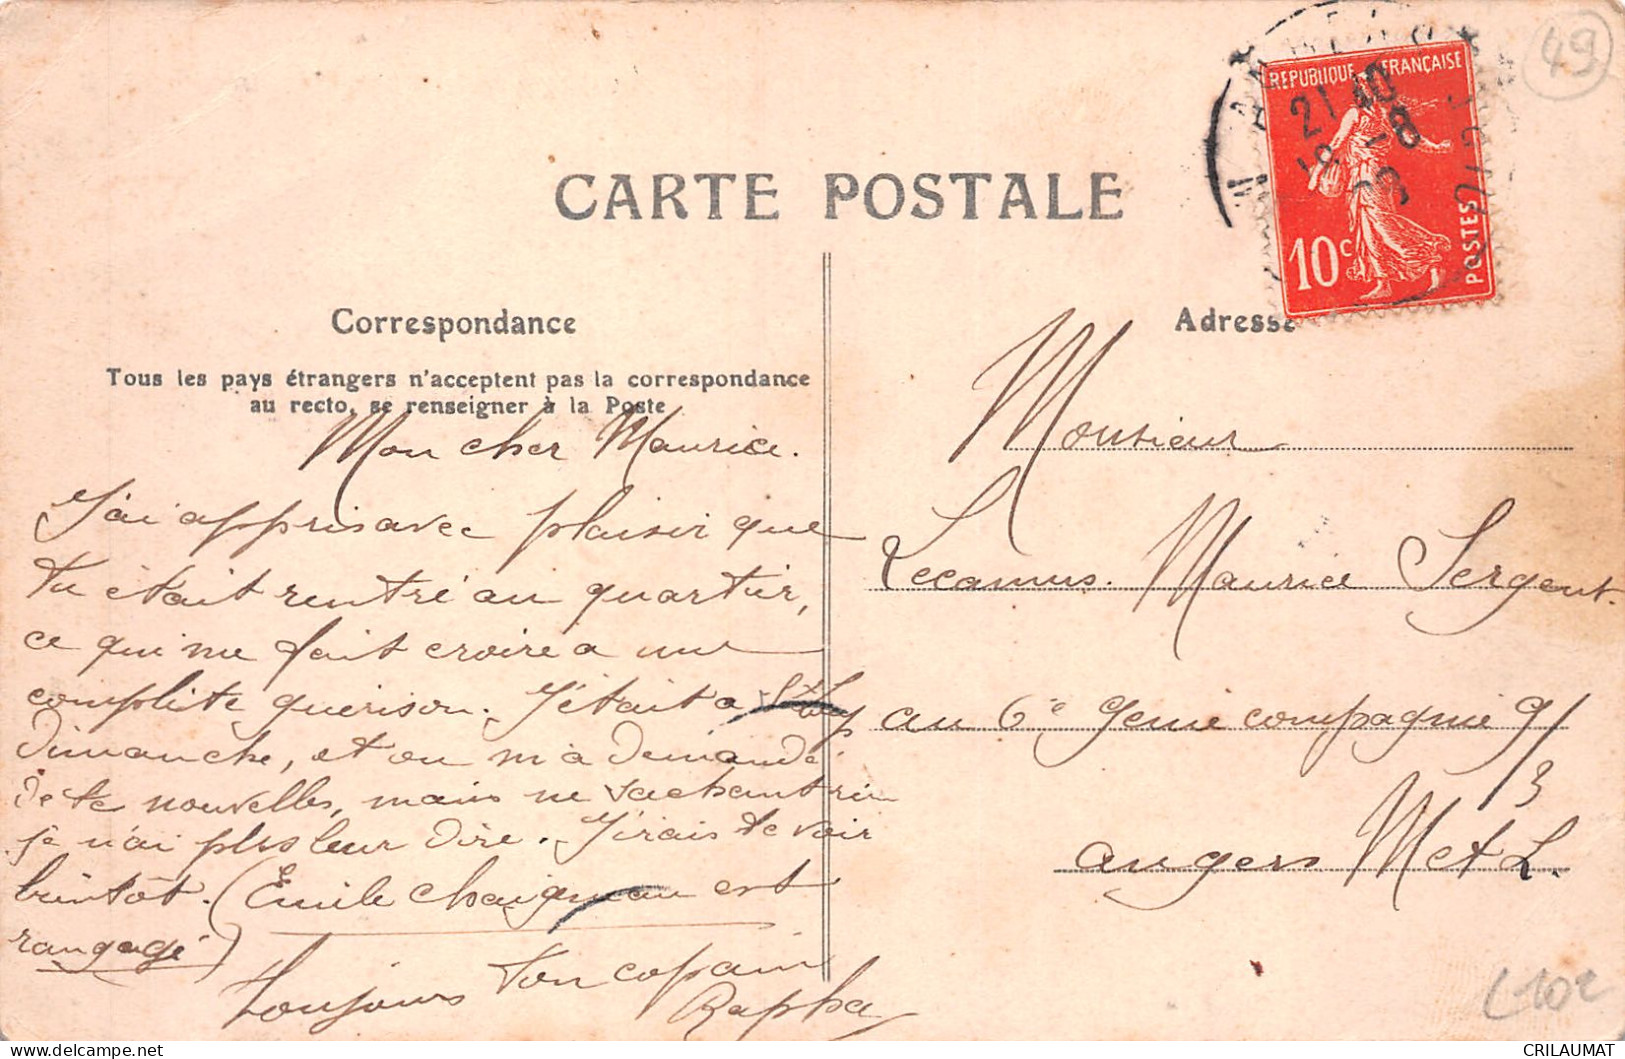 CARTE POSTALE
REPUBLIQUE FRANÇAISE
10c
POSTES
21 10
18 -8
09
49
Correspondance
Tous les pays étrangers n'acceptent pas la correspondance
au recto, se renseigner à la Poste
Mon cher Maurice.
J'ai appris avec plaisir que
tu était rentré au quartier,
ce qui me fait croire a une
complite guerison. J'était a St
dimanche, et on m'a demandé
de te nouvelles, mais ne sachant rien
je n'ai plus leur dire. J'irais te voir
bientôt. (Emile Chaigneau est
rangagé)
Toujours ton copain
Rapha
Adresse
Monsieur
Lecamus. Maurice Sergent.
au 6e Genie compagnie 9/3
angers M et L.
102
CRILAUMAT